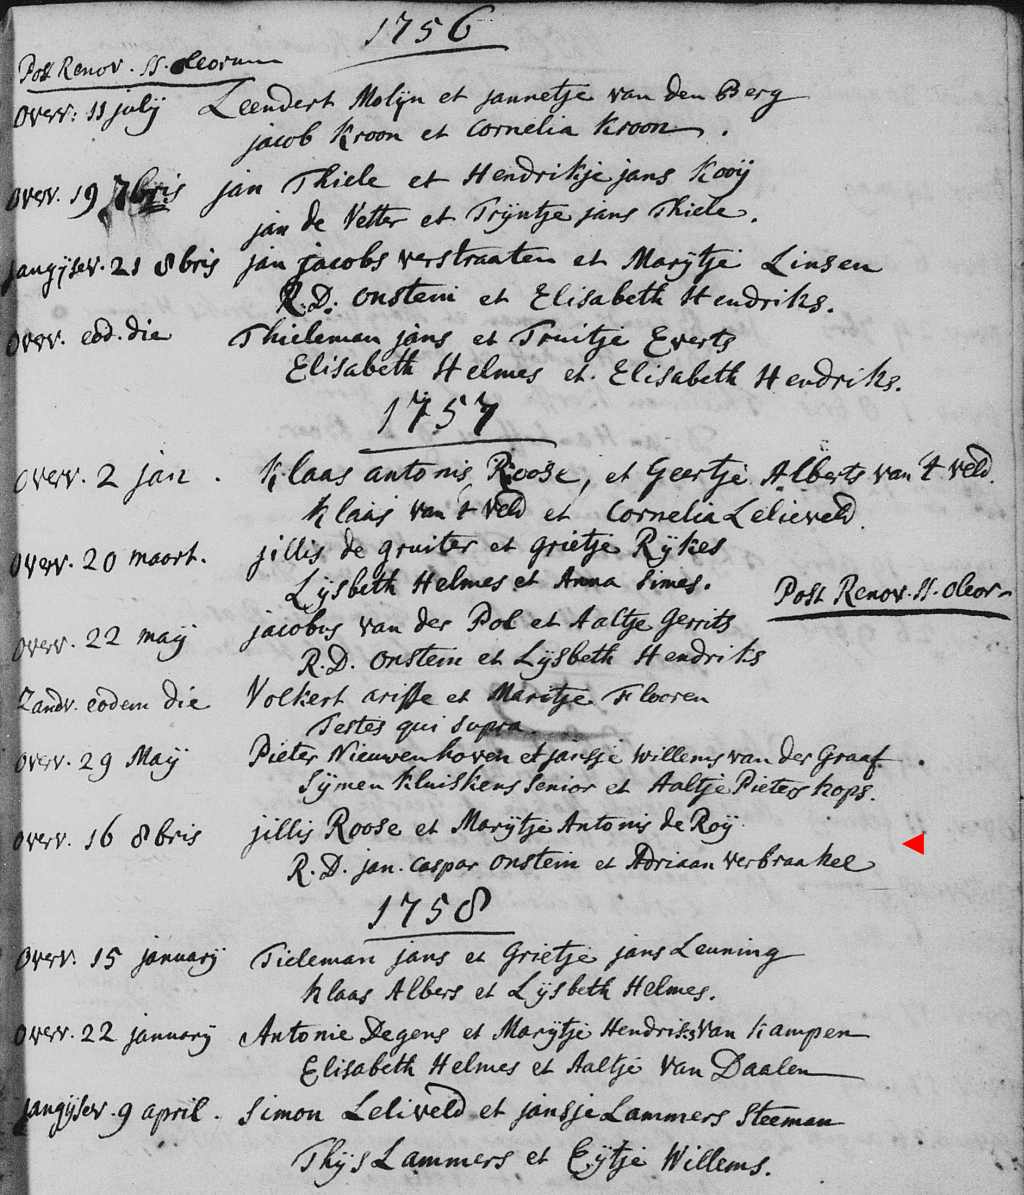 1756
Post Renov. SS. oleorum
overv: 11 julij Leendert Molijn et jannetje van den Berg
jacob Kroon et Cornelia Kroon.
overv. 19 7bris jan Thiele et Hendrikje jans Kooij
jan de Vetter et Trijntje jans Thiele.
jangijsev. 21 8bris jan jacobs verstraaten et Marijtje Linsen
R.D. onstein et Elisabeth Hendriks.
overv. eod. die Thieleman jans et Truitje Everts
Elisabeth Helmes et. Elisabeth Hendriks.
1757
overv. 2 jan. Klaas antonis Roose, et Geertje Alberts van 't veld.
Klaas van 't veld et Cornelia Lelieveld.
overv. 20 maort. jillis de gruiter et grietje Rijkes
Lijsbeth Helmes et Anna Simes.
Post Renov. SS. oleor
overv. 22 maij jacobus van der Pol et Aaltje Gerrits
R.D. onstein et Lijsbeth Hendriks
Zandv. eodem die Volkert arisse et Maritje Flooren
Testes qui supra
overv. 29 Maij Pieter Nieuwenhoven et jansje willems van der Graaf.
Sijmen Kluiskens Senior et Aaltje Pieters Kops.
overv. 16 8bris jillis Roose et Marijtje Antonis de Roij
R.D. jan. caspar onstein et Adriaan verbraakel
1758
overv. 15 januarij Tieleman jans et Grietje jans Leuning
Klaas Albers et Lijsbeth Helmes.
overv. 22 januarij Antonie Degens et Marijtje Hendriks van Kampen
Elisabeth Helmes et Aaltje van Daalen
jangijsev. 9 april. Simon Leliveld et jansje Lammers Steeman
Thijs Lammers et Eijtje Willems.